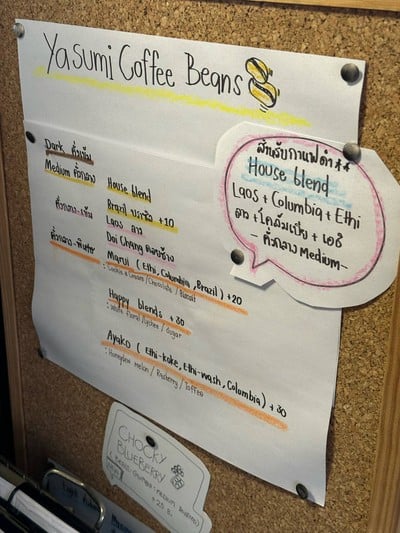 Yasumi Coffee Beans
Dark คั่วเข้ม
Medium คั่วกลาง
House blend
Brazil บราซิล +10
คั่วกลาง-เข้ม Laos ลาว
Doi Chang ดอยช้าง
คั่วกลาง
Magrui ( Ethi, Columbia, Brazil ) +20
Happy blends +30
Ayako ( Ethi-koke, Ethi-wash, Columbia ) +30
: Honeydew melon / Rasberry / Toffee
สำหรับกาแฟดำ **
House blend
Laos + Columbia + Ethi
ลาว + โคลัมเบีย + เอธิ
- คั่วกลาง Medium -
CHOCKY
BLUEBERRY